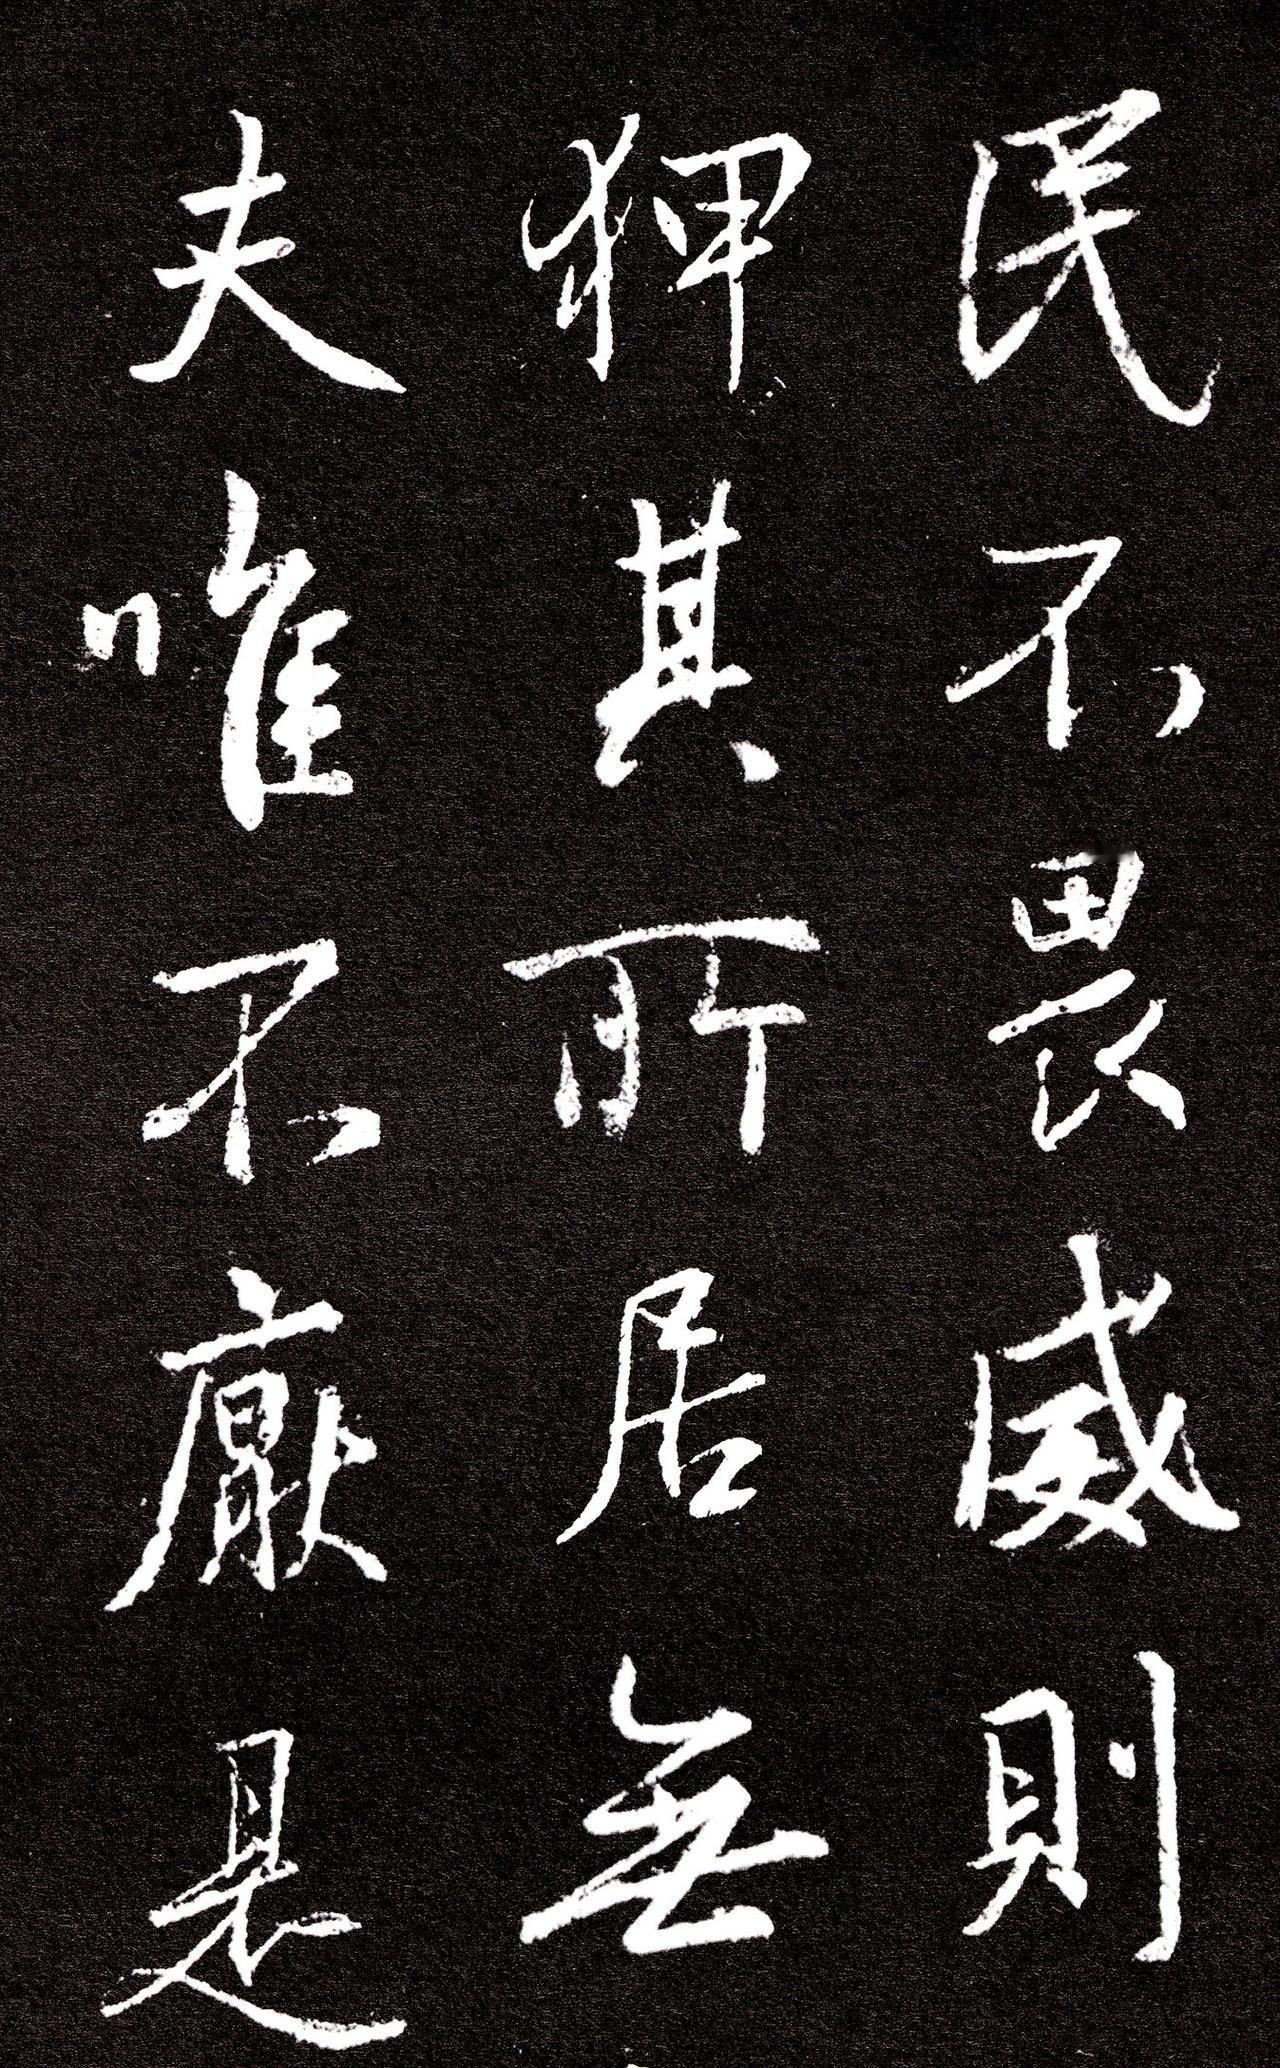 民不畏威則
狎其所居無
夫唯不厭是